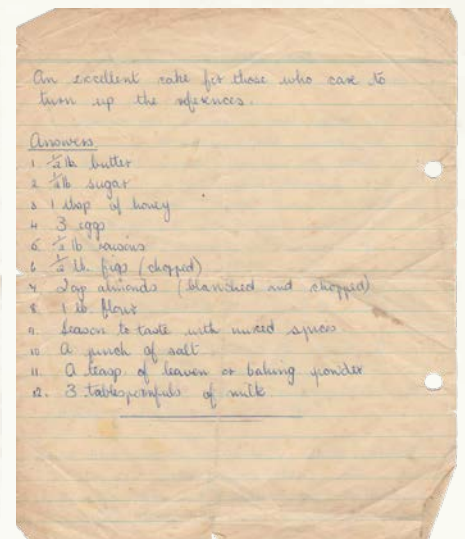 An excellent cake for those who care to
turn up the references.
Answers
1. ½ lb butter
2. ½ lb sugar
3 1 tbsp of honey
4 3 eggs
5 ½ lb raisins
6 ½ lb. figs (chopped)
7 2oz almonds (blanched and chopped)
8 1 lb. flour
9. Season to taste with mixed spices
10 A pinch of salt
11 A teasp of leaven or baking powder
12. 3 tablespoonfuls of milk